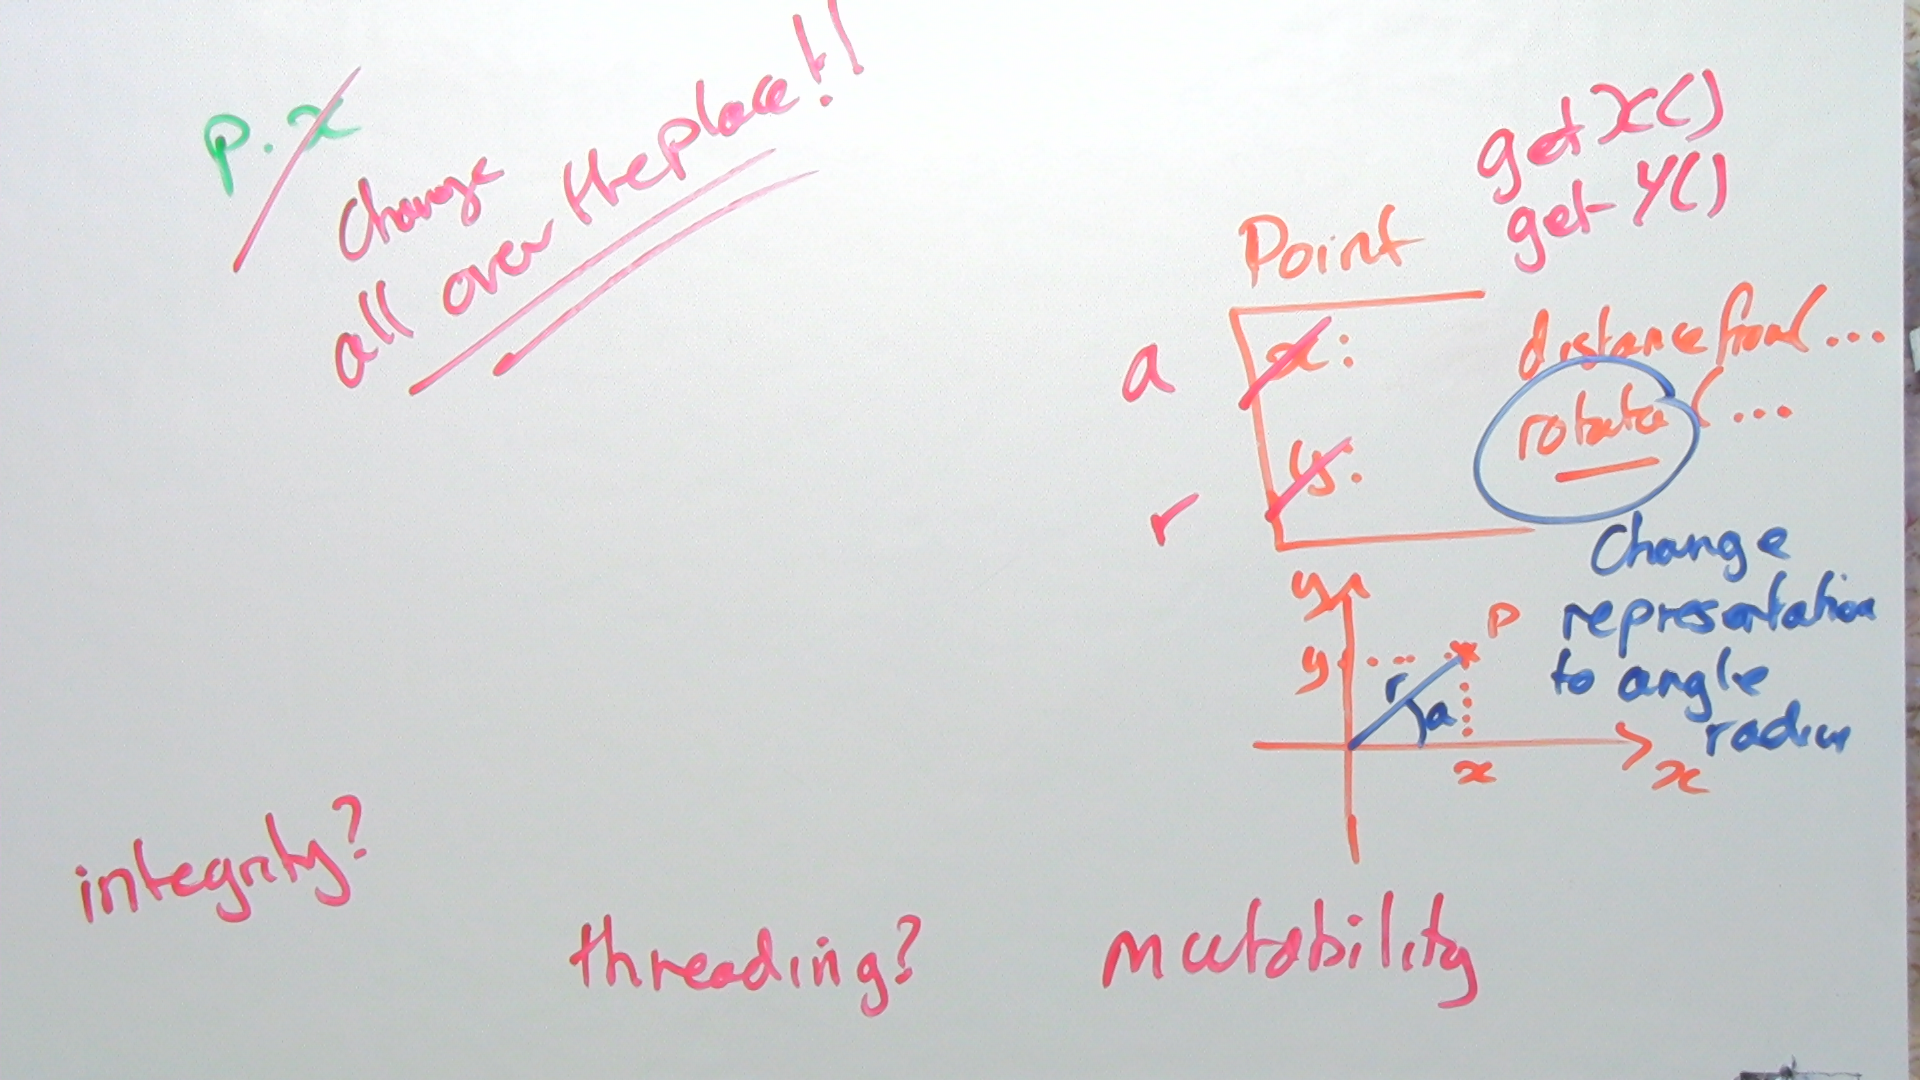 p.x
Change
all over the place!!
getX()
getY()
Point
a
x:
distancefrom(...
rotate(...
r
y:
Change
representation
to angle
radius
y
p
y
r
a
x
x
integrity?
threading?
mutability